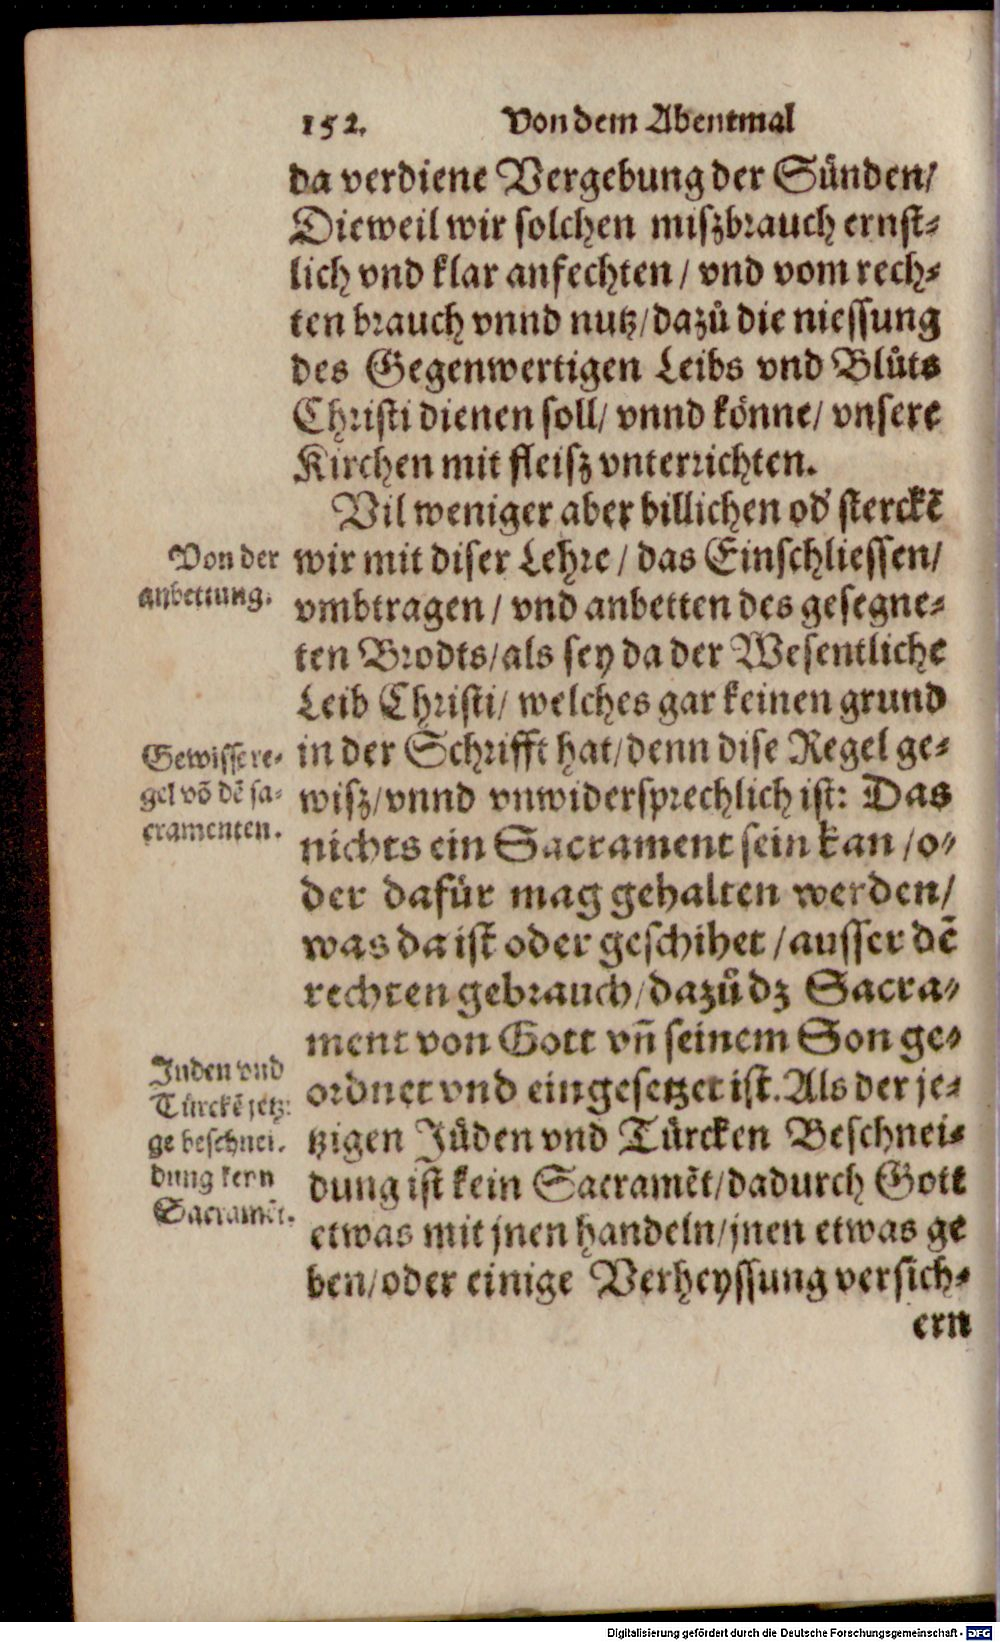 152. Von dem Abentmal
da verdiene Vergebung der Sünden/
Dieweil wir solchen miszbrauch ernst-
lich vnd klar anfechten / vnd vom rech-
ten brauch vnnd nutz/dazuͦ die niessung
des Gegenwertigen Leibs vnd Bluͦts
Christi dienen soll/ vnnd könne/ vnsere
Kirchen mit fleisz vnterrichten.
Vil weniger aber billichen od' sterckē
Von der
anbettung.
wir mit diser Lehre / das Einschliessen/
vmbtragen / vnd anbetten des gesegne-
ten Brodts/als sey da der Wesentliche
Leib Christi/ welches gar keinen grund
Gewisse re-
gel võ dē sa-
cramenten.
in der Schrifft hat/denn dise Regel ge-
wisz/vnnd vnwidersprechlich ist: Das
nichts ein Sacrament sein kan /o-
der dafür mag gehalten werden/
was da ist oder geschihet /ausser dē
rechten gebrauch/dazuͦ dz Sacra-
ment von Gott vñ seinem Son ge-
Juden vnd
Türckē jetz-
ge beschnei-
dung kern
Sacramēt.
ordnet vnd eingesetzet ist. Als der je-
tzigen Jüden vnd Türcken Beschnei-
dung ist kein Sacramēt/dadurch Gott
etwas mit jnen handeln/jnen etwas ge
ben/oder einige Verheyssung versich-
ern
Digitalisierung gefördert durch die Deutsche Forschungsgemeinschaft - DFG